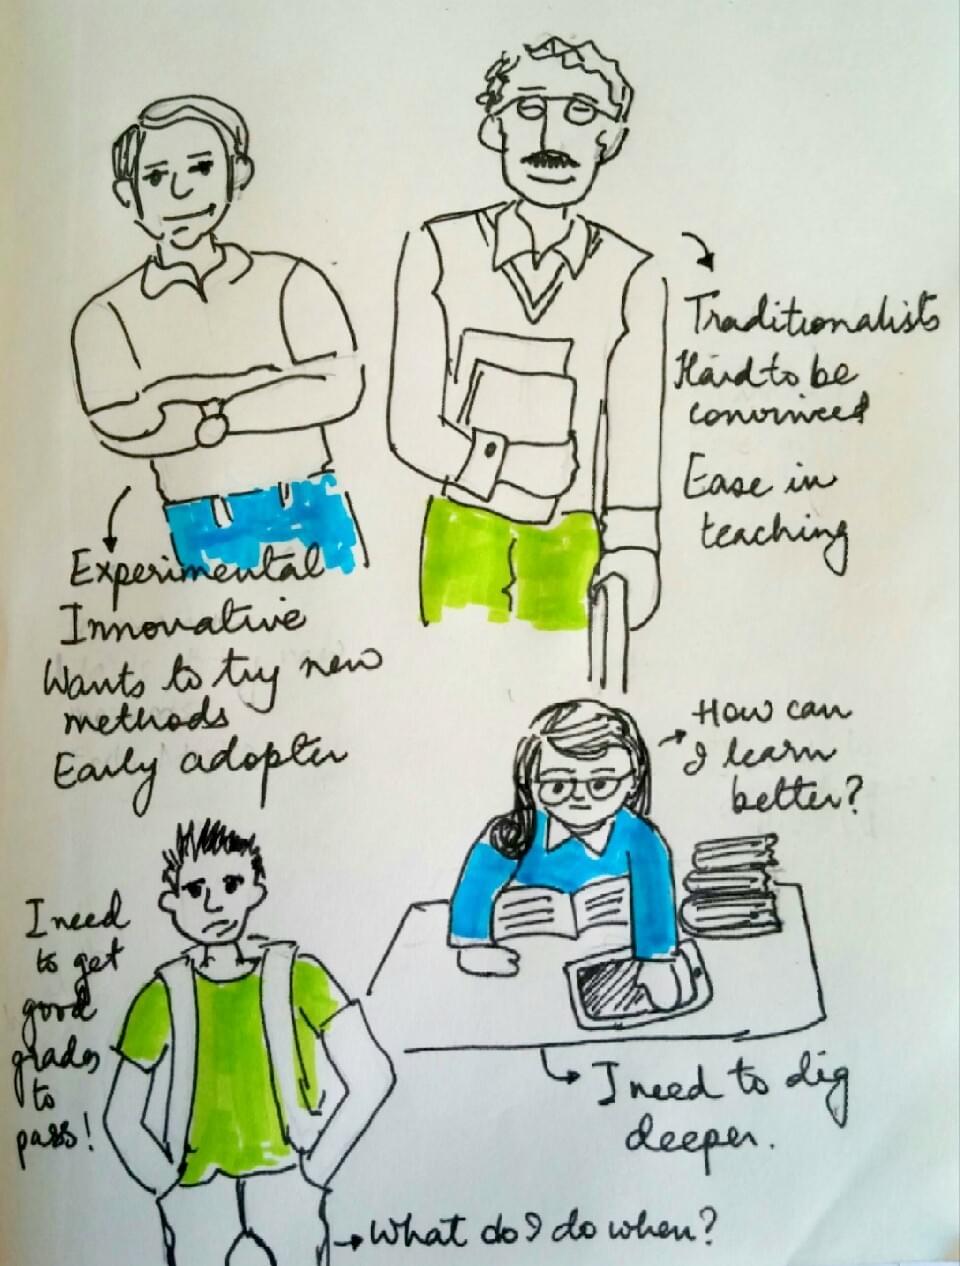 Traditionalists
Hard to be
convinced
Ease in
teaching
Experimental
Innovative
Wants to try new
methods
Early adopter
How can
I learn
better?
I need
to get
good
grades
to
pass!
I need to dig
deeper.
What do I do when?